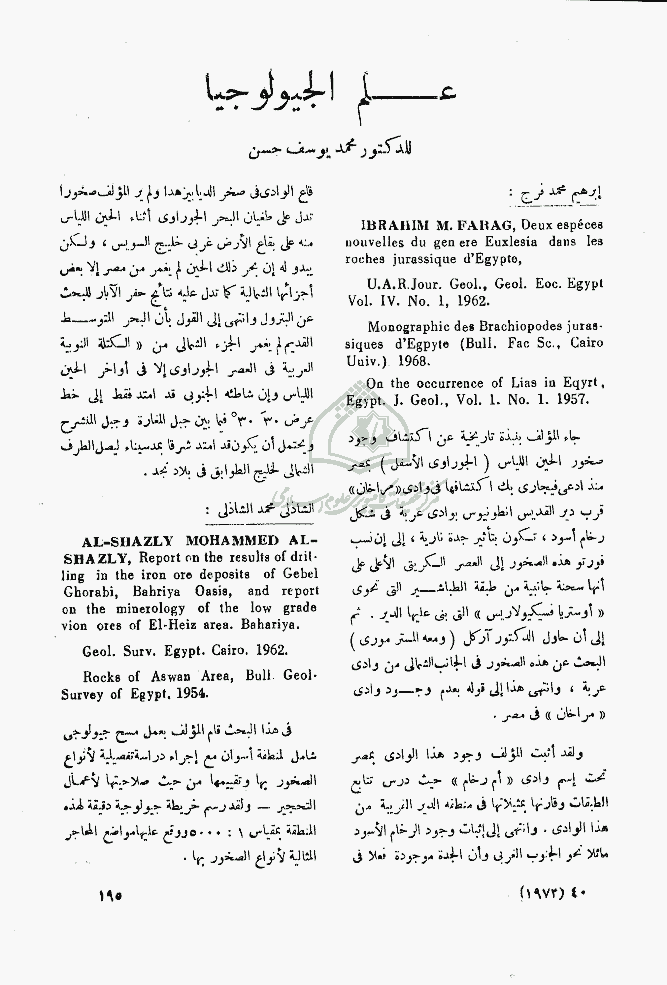 علم الجيولوجيا
للدكتور محمد يوسف حسن
إبرهيم محمد فرج :
IBRAHIM M. FARAG, Deux espéces
nouvelles du genere Euxlesia dans les
roches jurassique d'Egypte,
U.A.R.Jour. Geol., Geol. Eoc. Egypt
Vol. IV. No. 1, 1962.
Monographic des Brachiopodes juras-
siques d'Egpyte (Bull. Fac Sc., Cairo
Univ.) 1968.
On the occurrence of Lias in Eqyrt,
Egypt. J. Geol., Vol. 1. No. 1. 1957.
جاء المؤلف بنبذة تاريخية عن اكتشاف وجود
صخور الحين اللياس ( الجوراوى الأسفل ) بمصر
منذ ادعى فيجارى بك اكتشافها فى وادى «مراخان»
قرب دير القديس انطونيوس بوادى عربة فى شكل
رخام أسود ، تكون بتأثير جدة نارية ، إلى إن نسب
فورتو هذه الصخور إلى العصر الكريتى الأعلى على
أنها سحنة جانبية من طبقة الطباشير التى تحوى
« أوستريا فسيكيولاريس » التى بنى عليها الدير . ثم
إلى أن حاول الدكتور آركل ( ومعه المستر مورى )
البحث عن هذه الصخور فى الجانب الشمالى من وادى
عربة ، وانتهى هذا إلى قوله بعدم وجود وادى
« مراخان » فى مصر .
ولقد أثبت المؤلف وجود هذا الوادى بمصر
تحت إسم وادى « أم رخام » حيث درس تتابع
الطبقات وقارنها بمثيلاتها فى منطقه الدير الغربية من
هذا الوادى . وانتهى إلى إثبات وجود الرخام الأسود
مائلا نحو الجنوب الغربى وأن الجدة موجودة فعلا فى
قاع الوادى فى صخر الديابيز هذا ولم ير المؤلف صخورا
تدل على طغيان البحر الجوراوى أثناء الحين اللياس
منه على بقاع الأرض غربى خليج السويس ، ولكن
يبدو له إن بحر ذلك الحين لم يغمر من مصر إلا بعض
أجزائها الشمالية كما تدل عليه نتائج حفر الآبار للبحث
عن البترول وانتهى إلى القول بأن البحر المتوسط
القديم لم يغمر الجزء الشمالى من « الكتلة النوبية
العربية فى العصر الجوراوى إلا فى أواخر الحين
اللياس وإن شاطئه الجنوبى قد امتد فقط إلى خط
عرض ٣٠َ ٣٠° فيما بين جبل المغارة وجبل المنشرح
ويحتمل أن يكون قد امتد شرقا بعد سيناء ليصل الطرف
الشمالى لخليج الطوابق فى بلاد نجد .
الشاذلى محمد الشاذلى :
AL-SHAZLY MOHAMMED AL-
SHAZLY, Report on the results of dril-
ling in the iron ore deposits of Gebel
Ghorabi, Bahriya Oasis, and report
on the minerology of the low grade
vion ores of El-Heiz area. Bahariya.
Geol. Surv. Egypt. Cairo. 1962.
Rocks of Aswan Area, Bull. Geol-
Survey of Egypt, 1954.
فى هذا البحث قام المؤلف بعمل مسح جيولوجى
شامل لمنطقة أسوان مع إجراء دراسة تفصيلية لأنواع
الصخور بها وتقييمها من حيث صلاحيتها لأعمال
التحجير — ولقد رسم خريطة جيولوجية دقيقة لهذه
المنطقة بمقياس ١ : ٥٠٠٠ ووقع عليها مواضع المحاجر
المثالية لأنواع الصخور بها .
٤٠ (١٩٧٣)
١٩٥